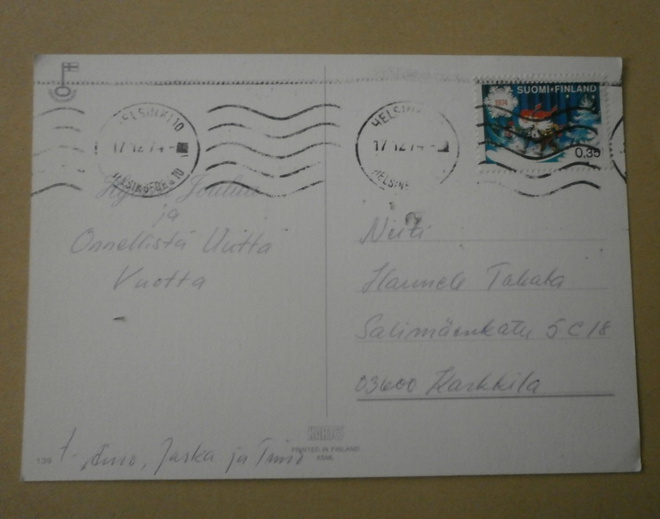 HELSINKI 10
17.12.74
HELSINGFORS 10
HELSINKI
17.12.74
SUOMI•FINLAND
1974
0,35
Hyvää Joulua
ja
Onnellista Uutta
Vuotta
Neiti
Hannele
Salimäenkatu 5 C 18
03600 Karkkila
Jaska ja
PRINTED IN FINLAND